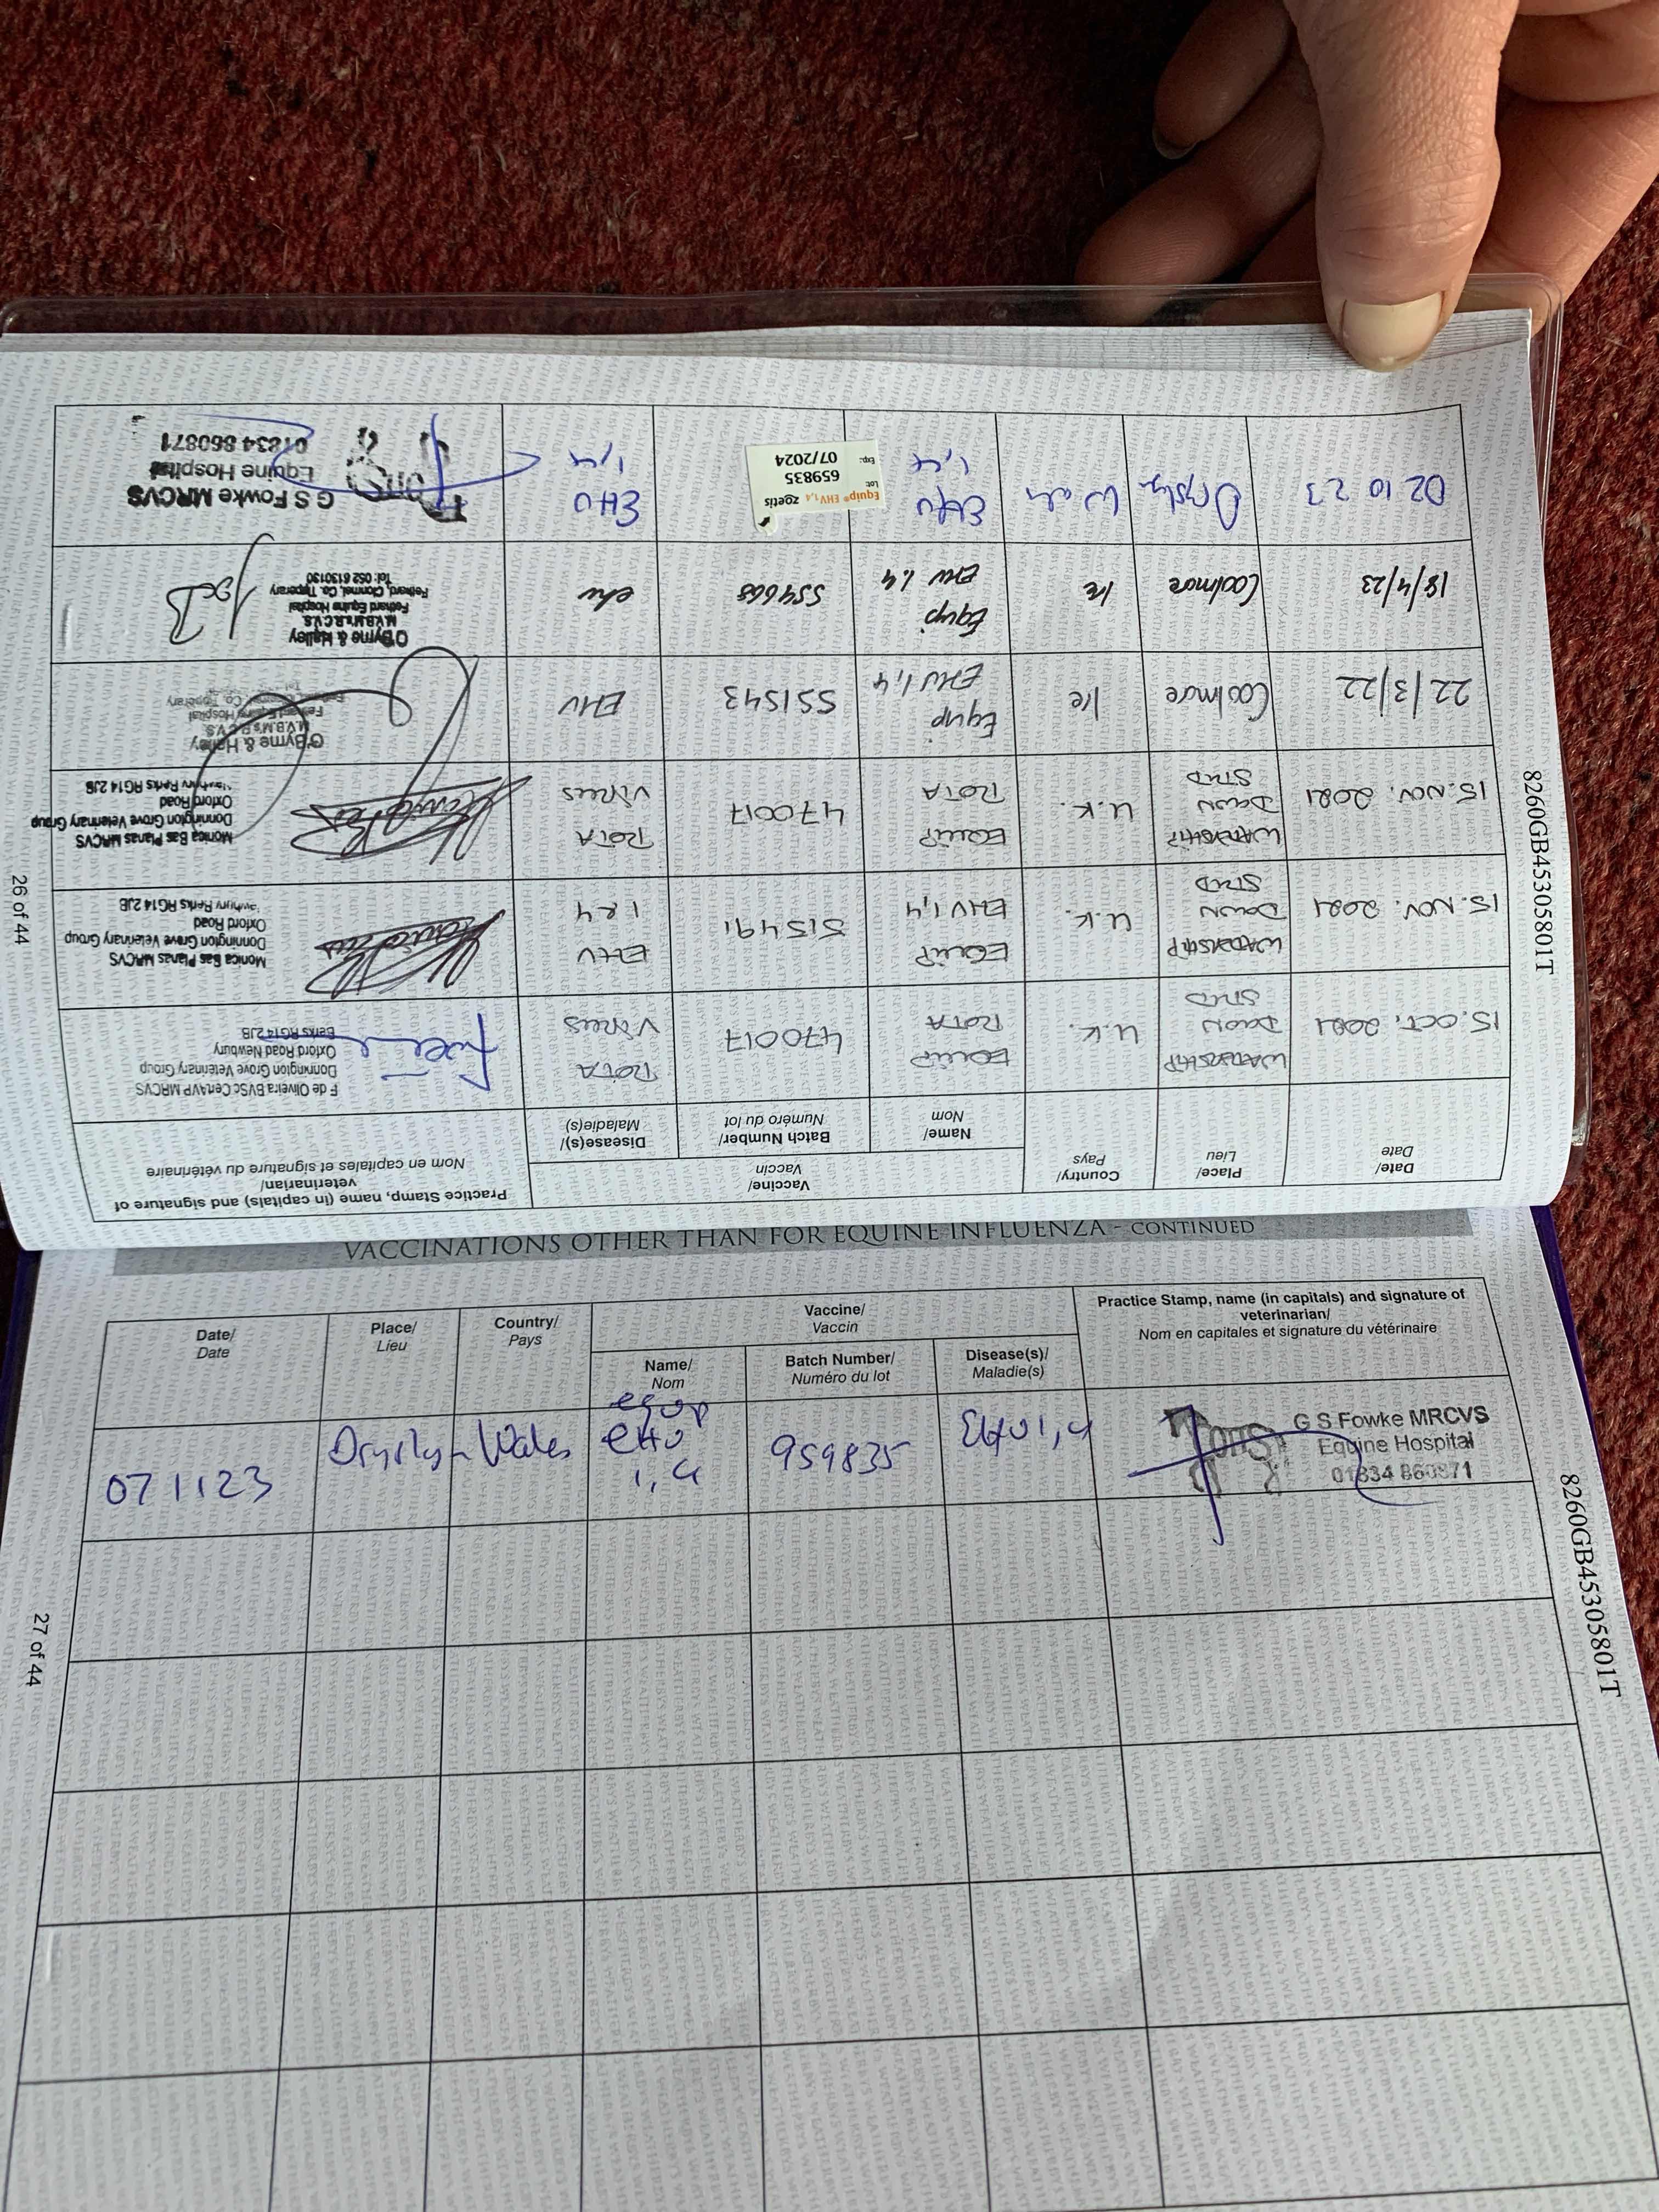 Practice Stamp, name (in capitals) and signature of
veterinarian/
Nom en capitales et signature du vétérinaire
Vaccine/
Vaccin
Date/
Date
Place/
Lieu
Country/
Pays
Name/
Nom
Batch Number/
Numéro du lot
Disease(s)/
Maladie(s)
15. OCT. 2021
WATERSHIP
DOWN
STUD
U.K.
EQUIP
ROTA
470017
ROTA
VIRUS
F de Oliveira BVSc CertAVP MRCVS
Donnington Grove Veterinary Group
Oxford Road Newbury
Berks RG14 2JB
15. NOV. 2021
WATERSHIP
DOWN
STUD
U.K.
EQUIP
EHV 1,4
515491
EHV
1 & 4
Monica Bas Planas MRCVS
Donnington Grove Veterinary Group
Oxford Road
Newbury Berks RG14 2JB
15. NOV. 2021
WATERSHIP
DOWN
STUD
U.K.
EQUIP
ROTA
470017
ROTA
VIRUS
Monica Bas Planas MRCVS
Donnington Grove Veterinary Group
Oxford Road
Newbury Berks RG14 2JB
22/3/22
Coolmore
Ire
Equip
EHV 1,4
551543
EHV
O'Byrne & Halley
M.V.B.M's R.C.V.S.
Fethard Equine Hospital
Co. Tipperary
18/4/23
Coolmore
Ire
Equip
EHV 1.4
554668
ehv
O'Byrne & Halley
M.V.B.M's.R.C.V.S.
Fethard Equine Hospital
Fethard, Clonmel, Co. Tipperary
Tel: 052 6130130
02 10 23
Wales
EHV
1,4
Equip® EHV1,4 zoetis
Lot: 659835
Exp: 07/2024
EHV
1,4
G S Fowke MRCVS
Equine Hospital
01834 860871
8260GB45305801T
26 of 44
VACCINATIONS OTHER THAN FOR EQUINE INFLUENZA - CONTINUED
Date/
Date
Place/
Lieu
Country/
Pays
Vaccine/
Vaccin
Name/
Nom
Batch Number/
Numéro du lot
Disease(s)/
Maladie(s)
Practice Stamp, name (in capitals) and signature of
veterinarian/
Nom en capitales et signature du vétérinaire
07 11 23
Wales
equip
EHV
1,4
959835
EHV 1,4
G S Fowke MRCVS
Equine Hospital
01834 860871
8260GB45305801T
27 of 44